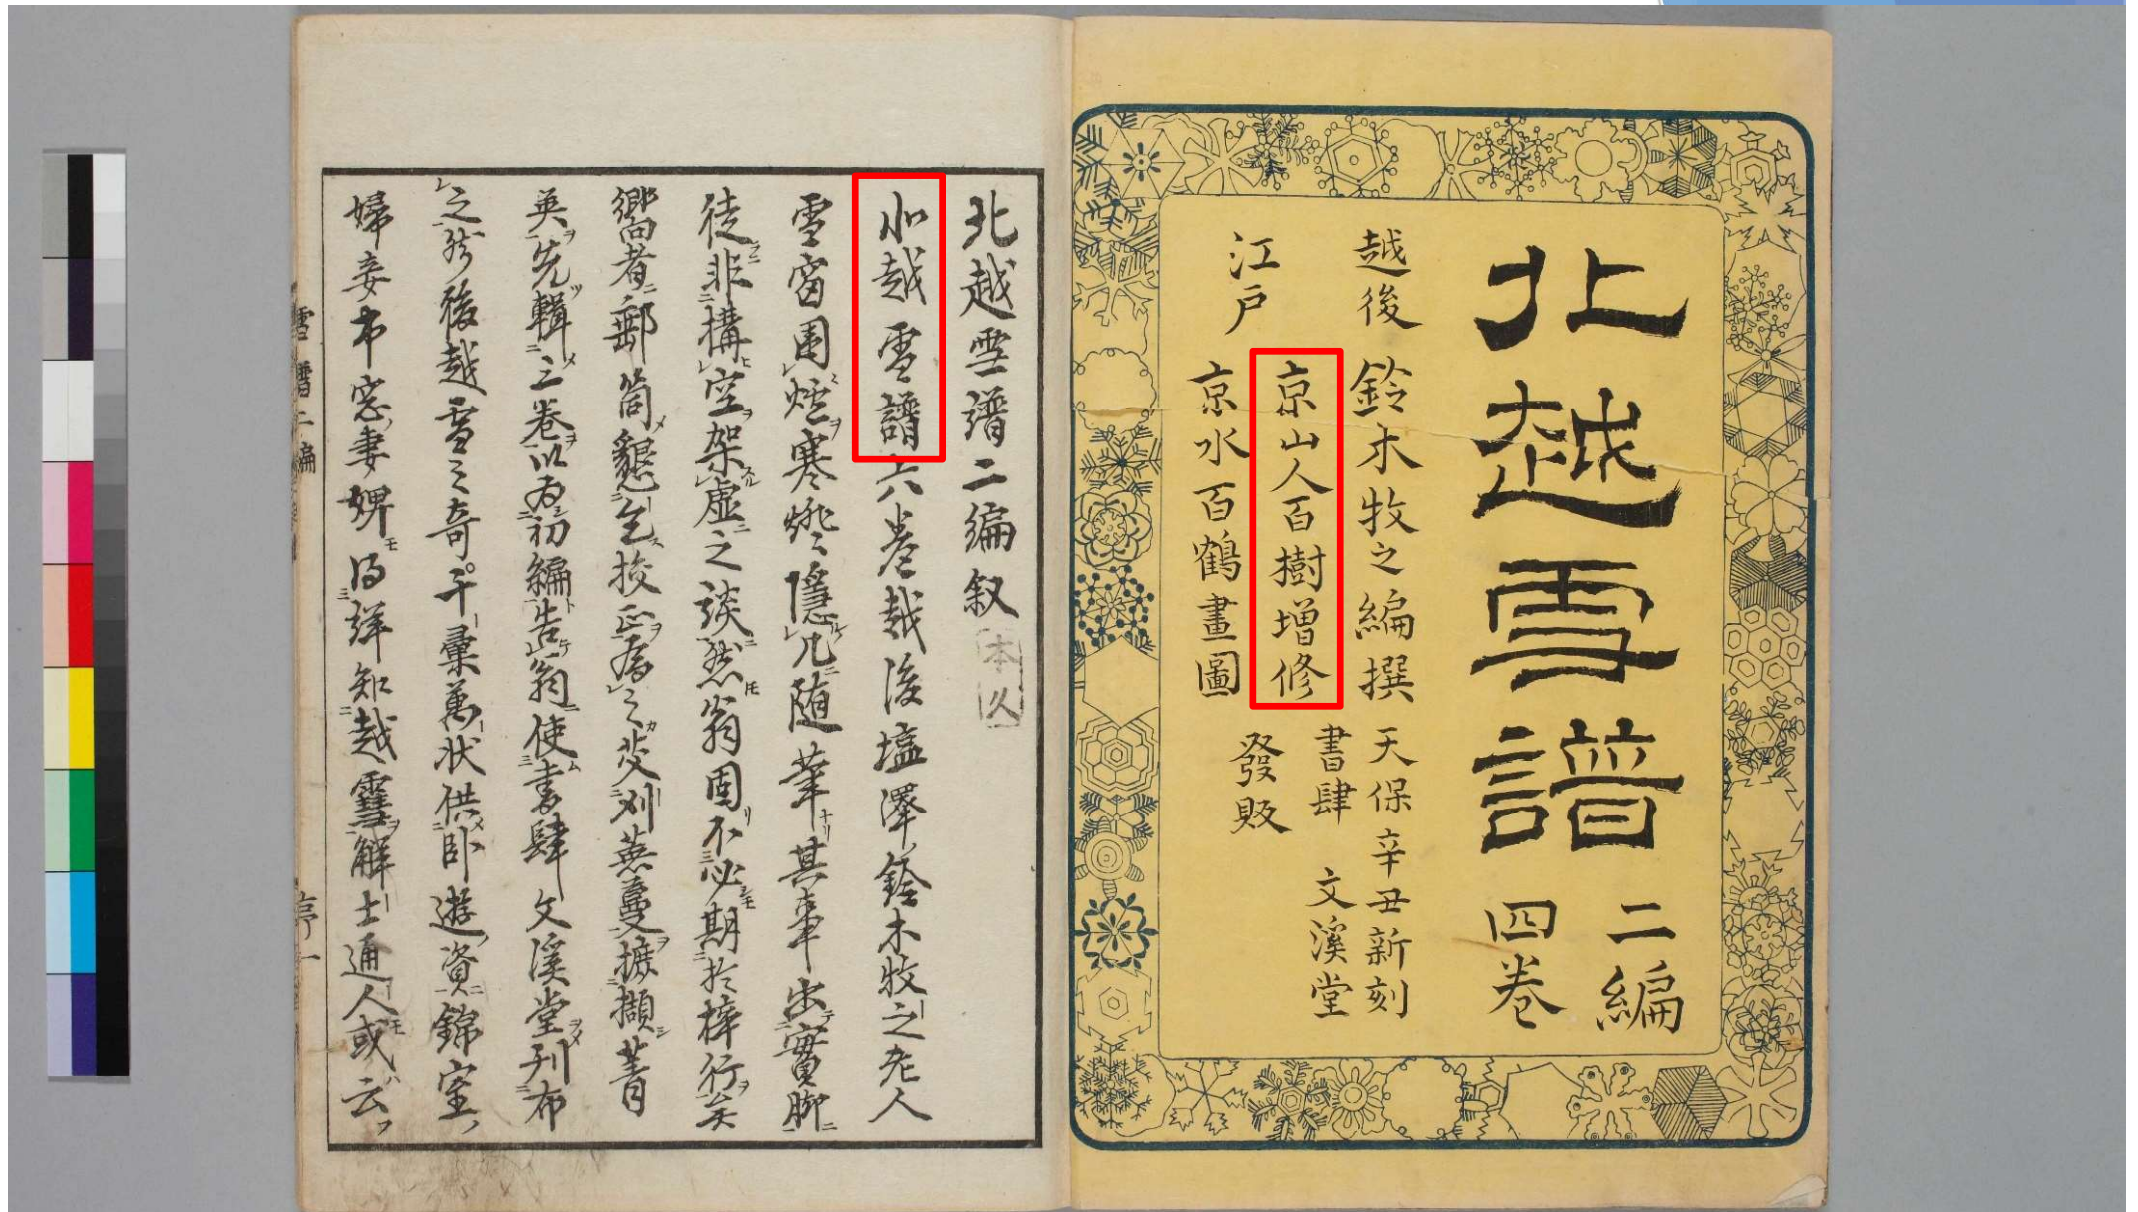 北越雪譜 二編
四巻
越後 鈴木牧之編撰
江戸 京山人百樹増修
京水百鶴畫圖
天保辛丑新刻
書肆 文溪堂
發販
北越雪譜二編叙
本久
北越雪譜六巻越後塩澤鈴木牧之老人
雪窗囲爐寒燈隠几随筆其事出實脚
徒非構空架虚之談然翁固不必期於梓行矣
嚮者郵筒懇乞挍正為之芟刈蕪蔓摭擷菁
英先輯三巻以為初編告翁使書肆文溪堂刊布
之於後越雪之奇千彙萬状供臥遊資錦室
婦妾市窓妻婢得詳知越雪解士通人或云
雪譜二編
序一